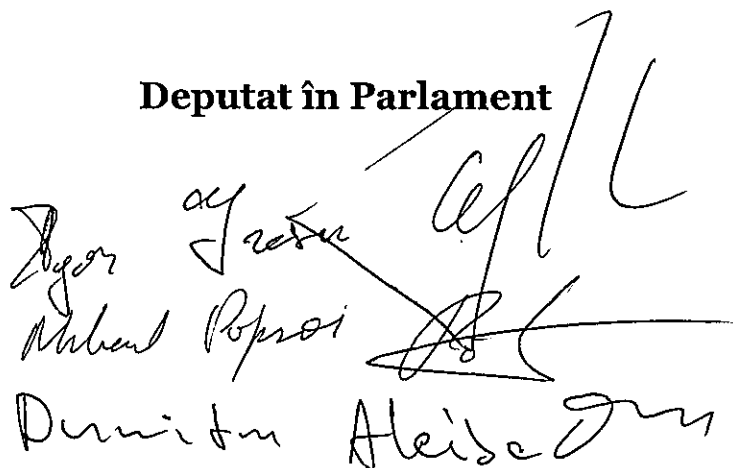 Deputat în Parlament
Igor Grosu
Mihail Popșoi
Dumitru Alaiba